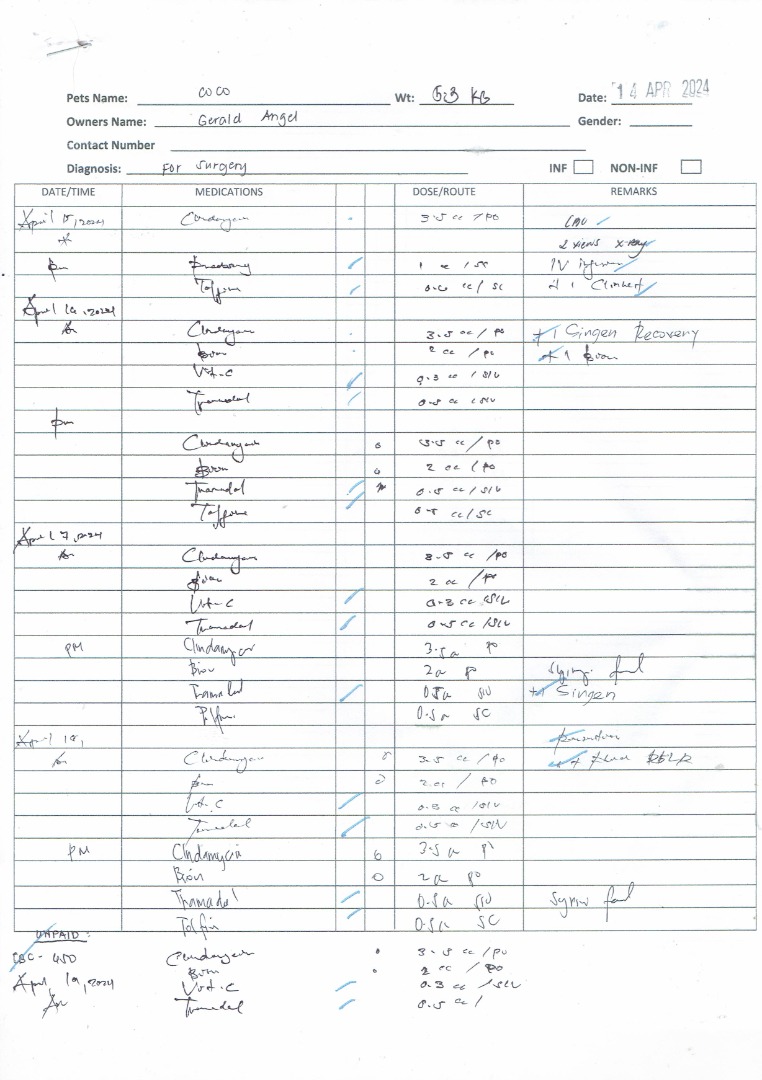 Pets Name: COCO Wt: 5.3 KG Date: 14 APR 2024
Owners Name: Gerald Angel Gender:
Contact Number
Diagnosis: For surgery INF NON-INF
DATE/TIME MEDICATIONS DOSE/ROUTE REMARKS
April 15, 2024 Clindamycin 3.5 cc / PO
2 views x-ray
pm 1 cc / SC IV
Tolfine cc / SC + 1
April 16, 2024
Am Clindamycin 3.5 cc / PO + 1 Singen Recovery
Bion 2 cc / PO + 1 Bion
Vit-C 0.3 cc / SIV
Tramadol 0.5 cc / SIV
pm
Clindamycin 3.5 cc / PO
Bion 2 cc / PO
Tramadol 0.5 cc / SIV
Tolfine 0.5 cc / SC
April 17, 2024
Am Clindamycin 3.5 cc / PO
Bion 2 cc / PO
Vit-C 0.3 cc / SIV
Tramadol 0.5 cc / SIV
PM Clindamycin 3.5 PO
Bion 2 PO
Tramadol 0.5 SIV + 1 Singen
Tolfin 0.5 SC
April 18,
Am Clindamycin 3.5 cc / PO
Bion 2 cc / PO
Vit.C 0.3 cc / SIV
Tramadol 0.5 cc / SIV
PM Clindamycin 3.5
Bion 2 PO
Tramadol 0.5 SIV
Tolfin 0.5 SC
UNPAID:
CBC - 450 Clindamycin 3.5 cc / PO
Bion 2 cc / PO
April 19, 2024 Vit-C 0.3 cc / SIV
Am Tramadol 0.5 cc /